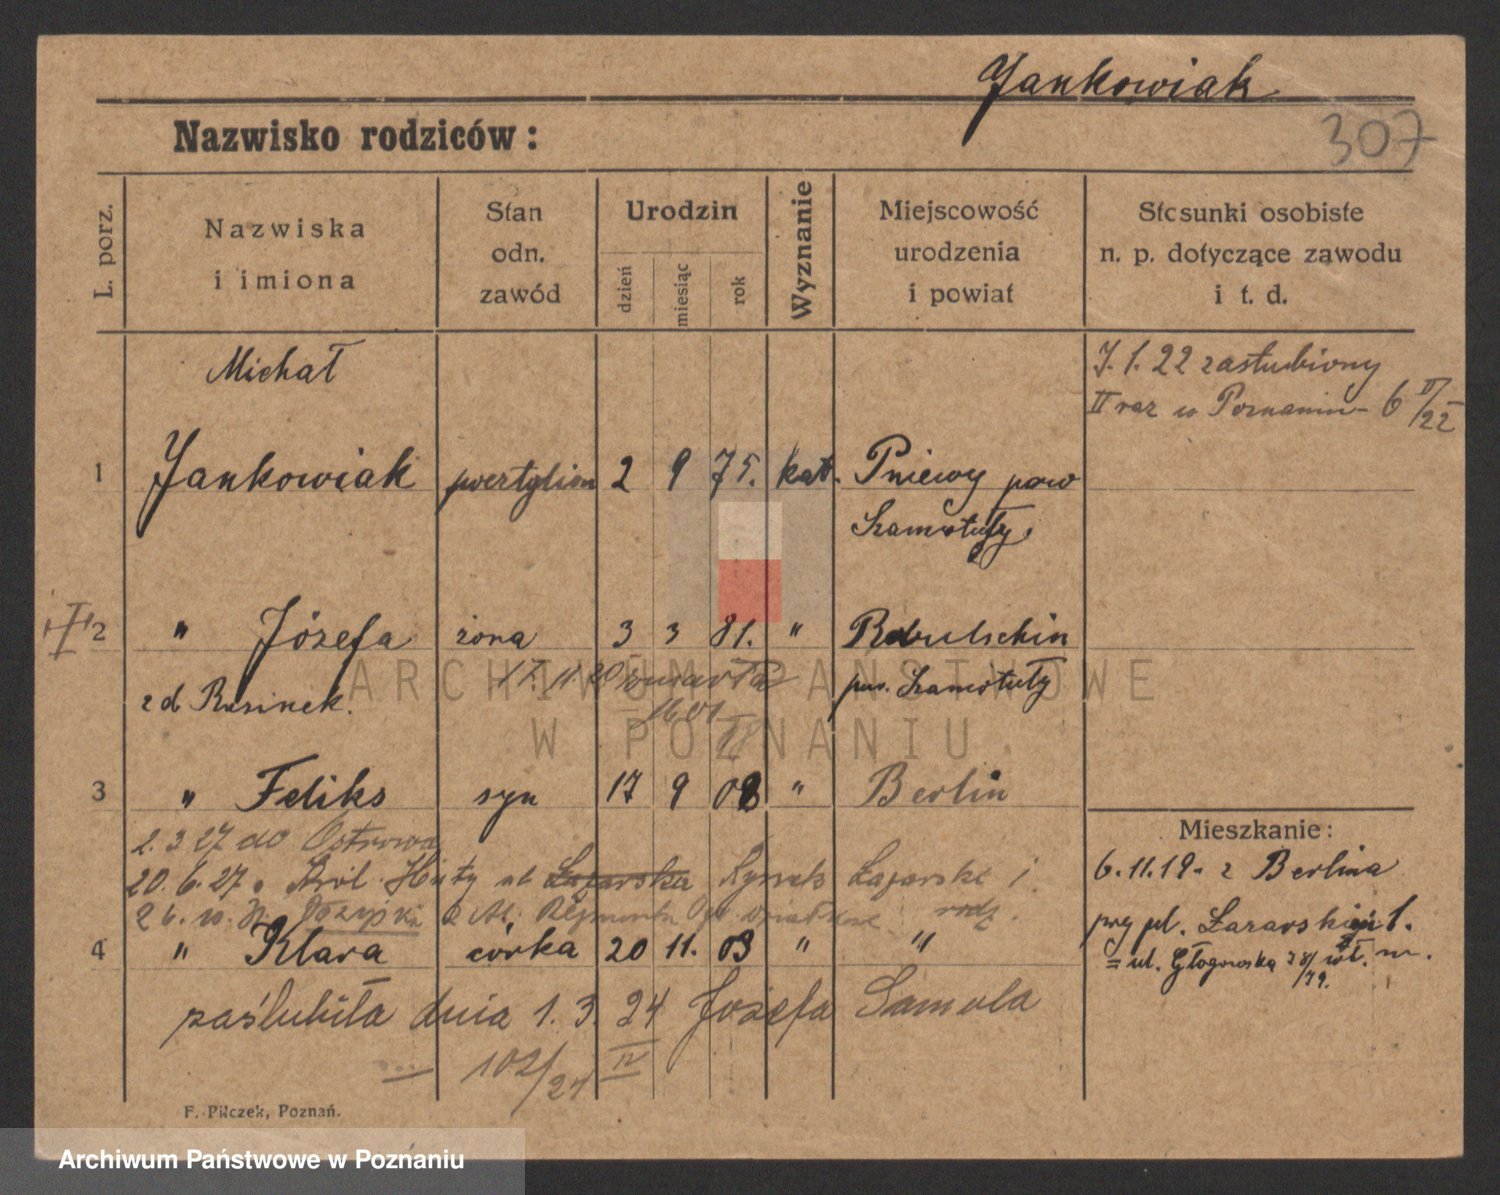 Jankowiak
307
Nazwisko rodziców:
L. porz.
Nazwiska
i imiona
Stan
odn.
zawód
Urodzin
dzień
miesiąc
rok
Wyznanie
Miejscowość
urodzenia
i powiat
Stosunki osobiste
n. p. dotyczące zawodu
i t. d.
Michał
1 Jankowiak 2 9 75. kat. Pniewy pow
Szamotuły.
7. 1. 22 zaślubiony
II raz w Poznaniu - 6 II/22
2 " Józefa żona 3 3 81. "
z d Rusinek. pow. Szamotuły
17. 11. 20 zmarła
3 " Feliks syn 17 9 08 " Berlin
2. 3 27 do Ostrowa
20. 6. 27. Król. Huty ul. Łazarska Rynek Łazarski 1.
4 " Klara córka 20 11. 03 " "
zaślubiła dnia 1. 3. 24 Józefa Samola
102/24 IV
Mieszkanie:
6. 11. 19 - z Berlina
przy pl. Łazarskim 1.
= ul. Głogowska 78/79.
F. Pilczek, Poznań.
ARCHIWUM PAŃSTWOWE
W POZNANIU
Archiwum Państwowe w Poznaniu